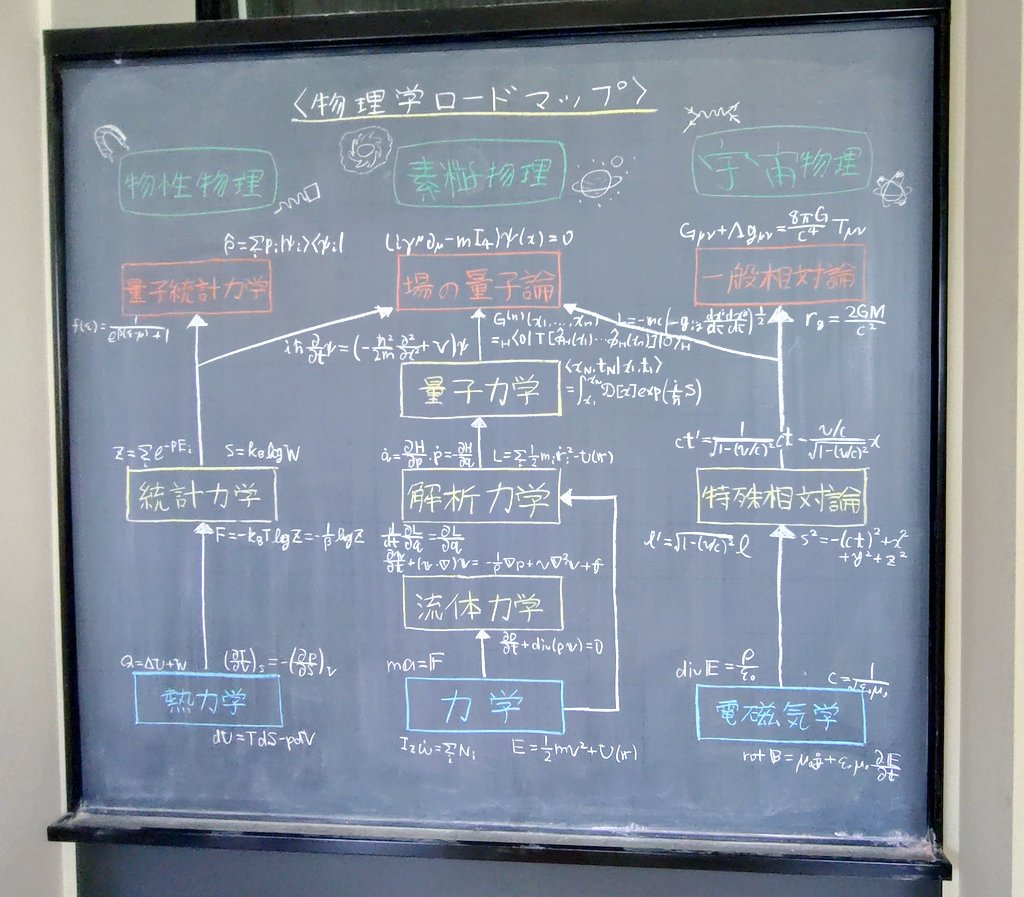 〈物理学ロードマップ〉
物性物理
素粒子物理
宇宙物理
ρ̂=Σᵢpᵢ|ψᵢ⟩⟨ψᵢ|
(iγ^μ∂_μ-mI₄)ψ(x)=0
G_μν+Λg_μν=8πG/c⁴ T_μν
量子統計力学
場の量子論
一般相対論
r_g=2GM/c²
G⁽ⁿ⁾(x₁,…,xₙ)
=_H⟨0|T[φ̂_H(x₁)…φ̂_H(xₙ)]|0⟩_H
iħ ∂/∂t ψ=(-ħ²/2m ∂²/∂x²+V)ψ
⟨x_N,t_N|x₁,t₁⟩
=∫_{x₁}^{x_N} D[x]exp(i/ħ S)
量子力学
ct'=1/√(1-(v/c)²) ct - v/c/√(1-(v/c)²) x
Z=Σᵢe^{-βEᵢ}
S=k_B log W
q̇=∂H/∂p, ṗ=-∂H/∂q
L=Σᵢ½mᵢṙᵢ²-U(r)
統計力学
解析力学
特殊相対論
F=-k_BT log Z=-1/β log Z
d/dt ∂L/∂q̇=∂L/∂q
l'=√(1-(v/c)²) l
s²=-(ct)²+x²
+y²+z²
∂v/∂t+(v·∇)v=-1/ρ∇p+ν∇²v+f
流体力学
∂ρ/∂t+div(ρv)=0
Q=ΔU+W
(∂T/∂V)_S=-(∂p/∂S)_V
ma=F
div E=ρ/ε₀
c=1/√(ε₀μ₀)
熱力学
力学
電磁気学
dU=TdS-pdV
I_zω̇=ΣᵢNᵢ
E=½mv²+U(r)
rot B=μ₀j+ε₀μ₀ ∂E/∂t